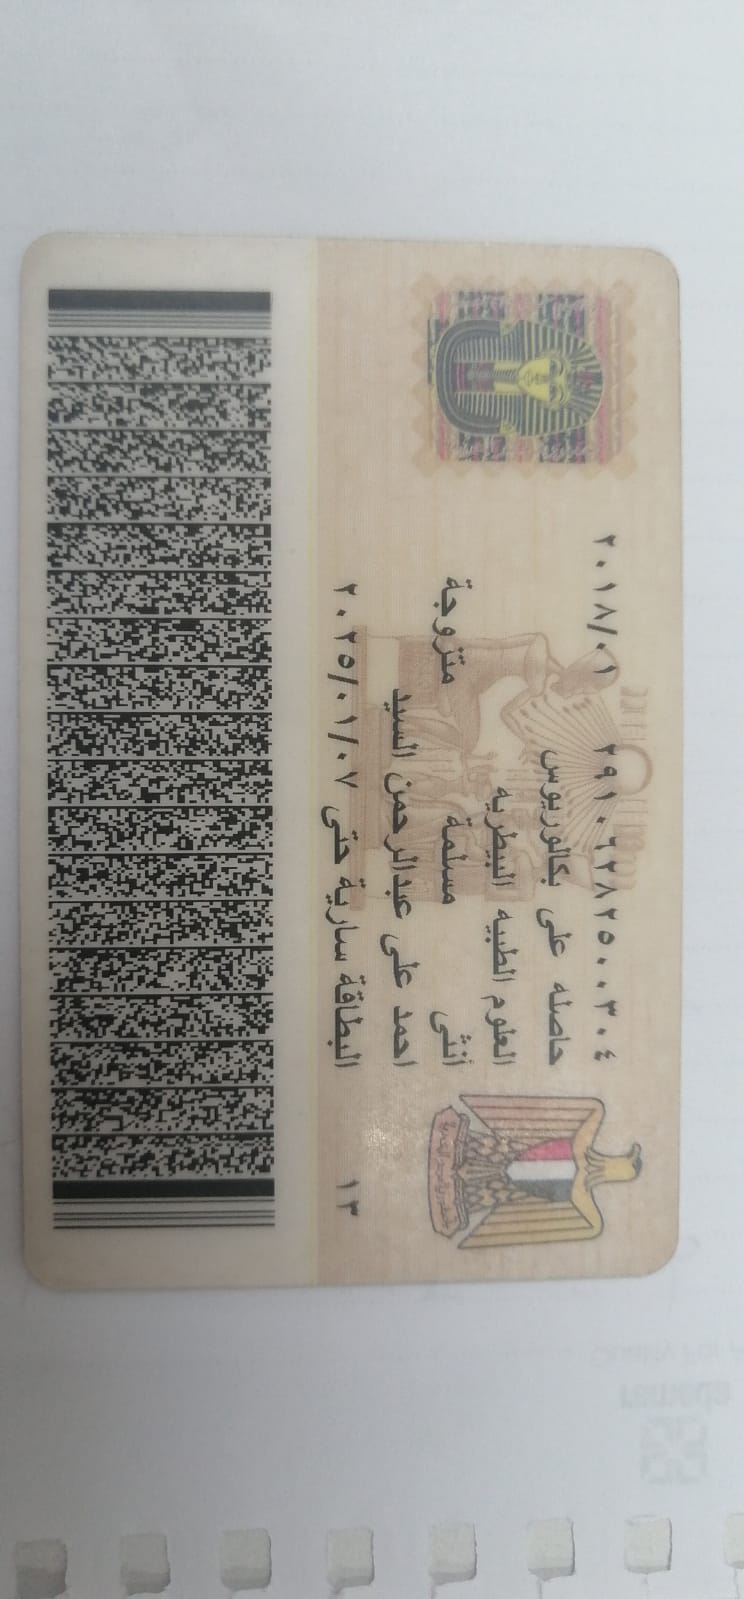 ٢٠١٨/٠١ ٢٩١٠٦٢٨٢٥٠٠٣٠٤
حاصله على بكالوريوس
العلوم الطبيه البيطريه
أنثى مسلمة متزوجة
احمد على عبدالرحمن السيد
البطاقة سارية حتى ٢٠٢٥/٠١/٠٧
١٣
rameda